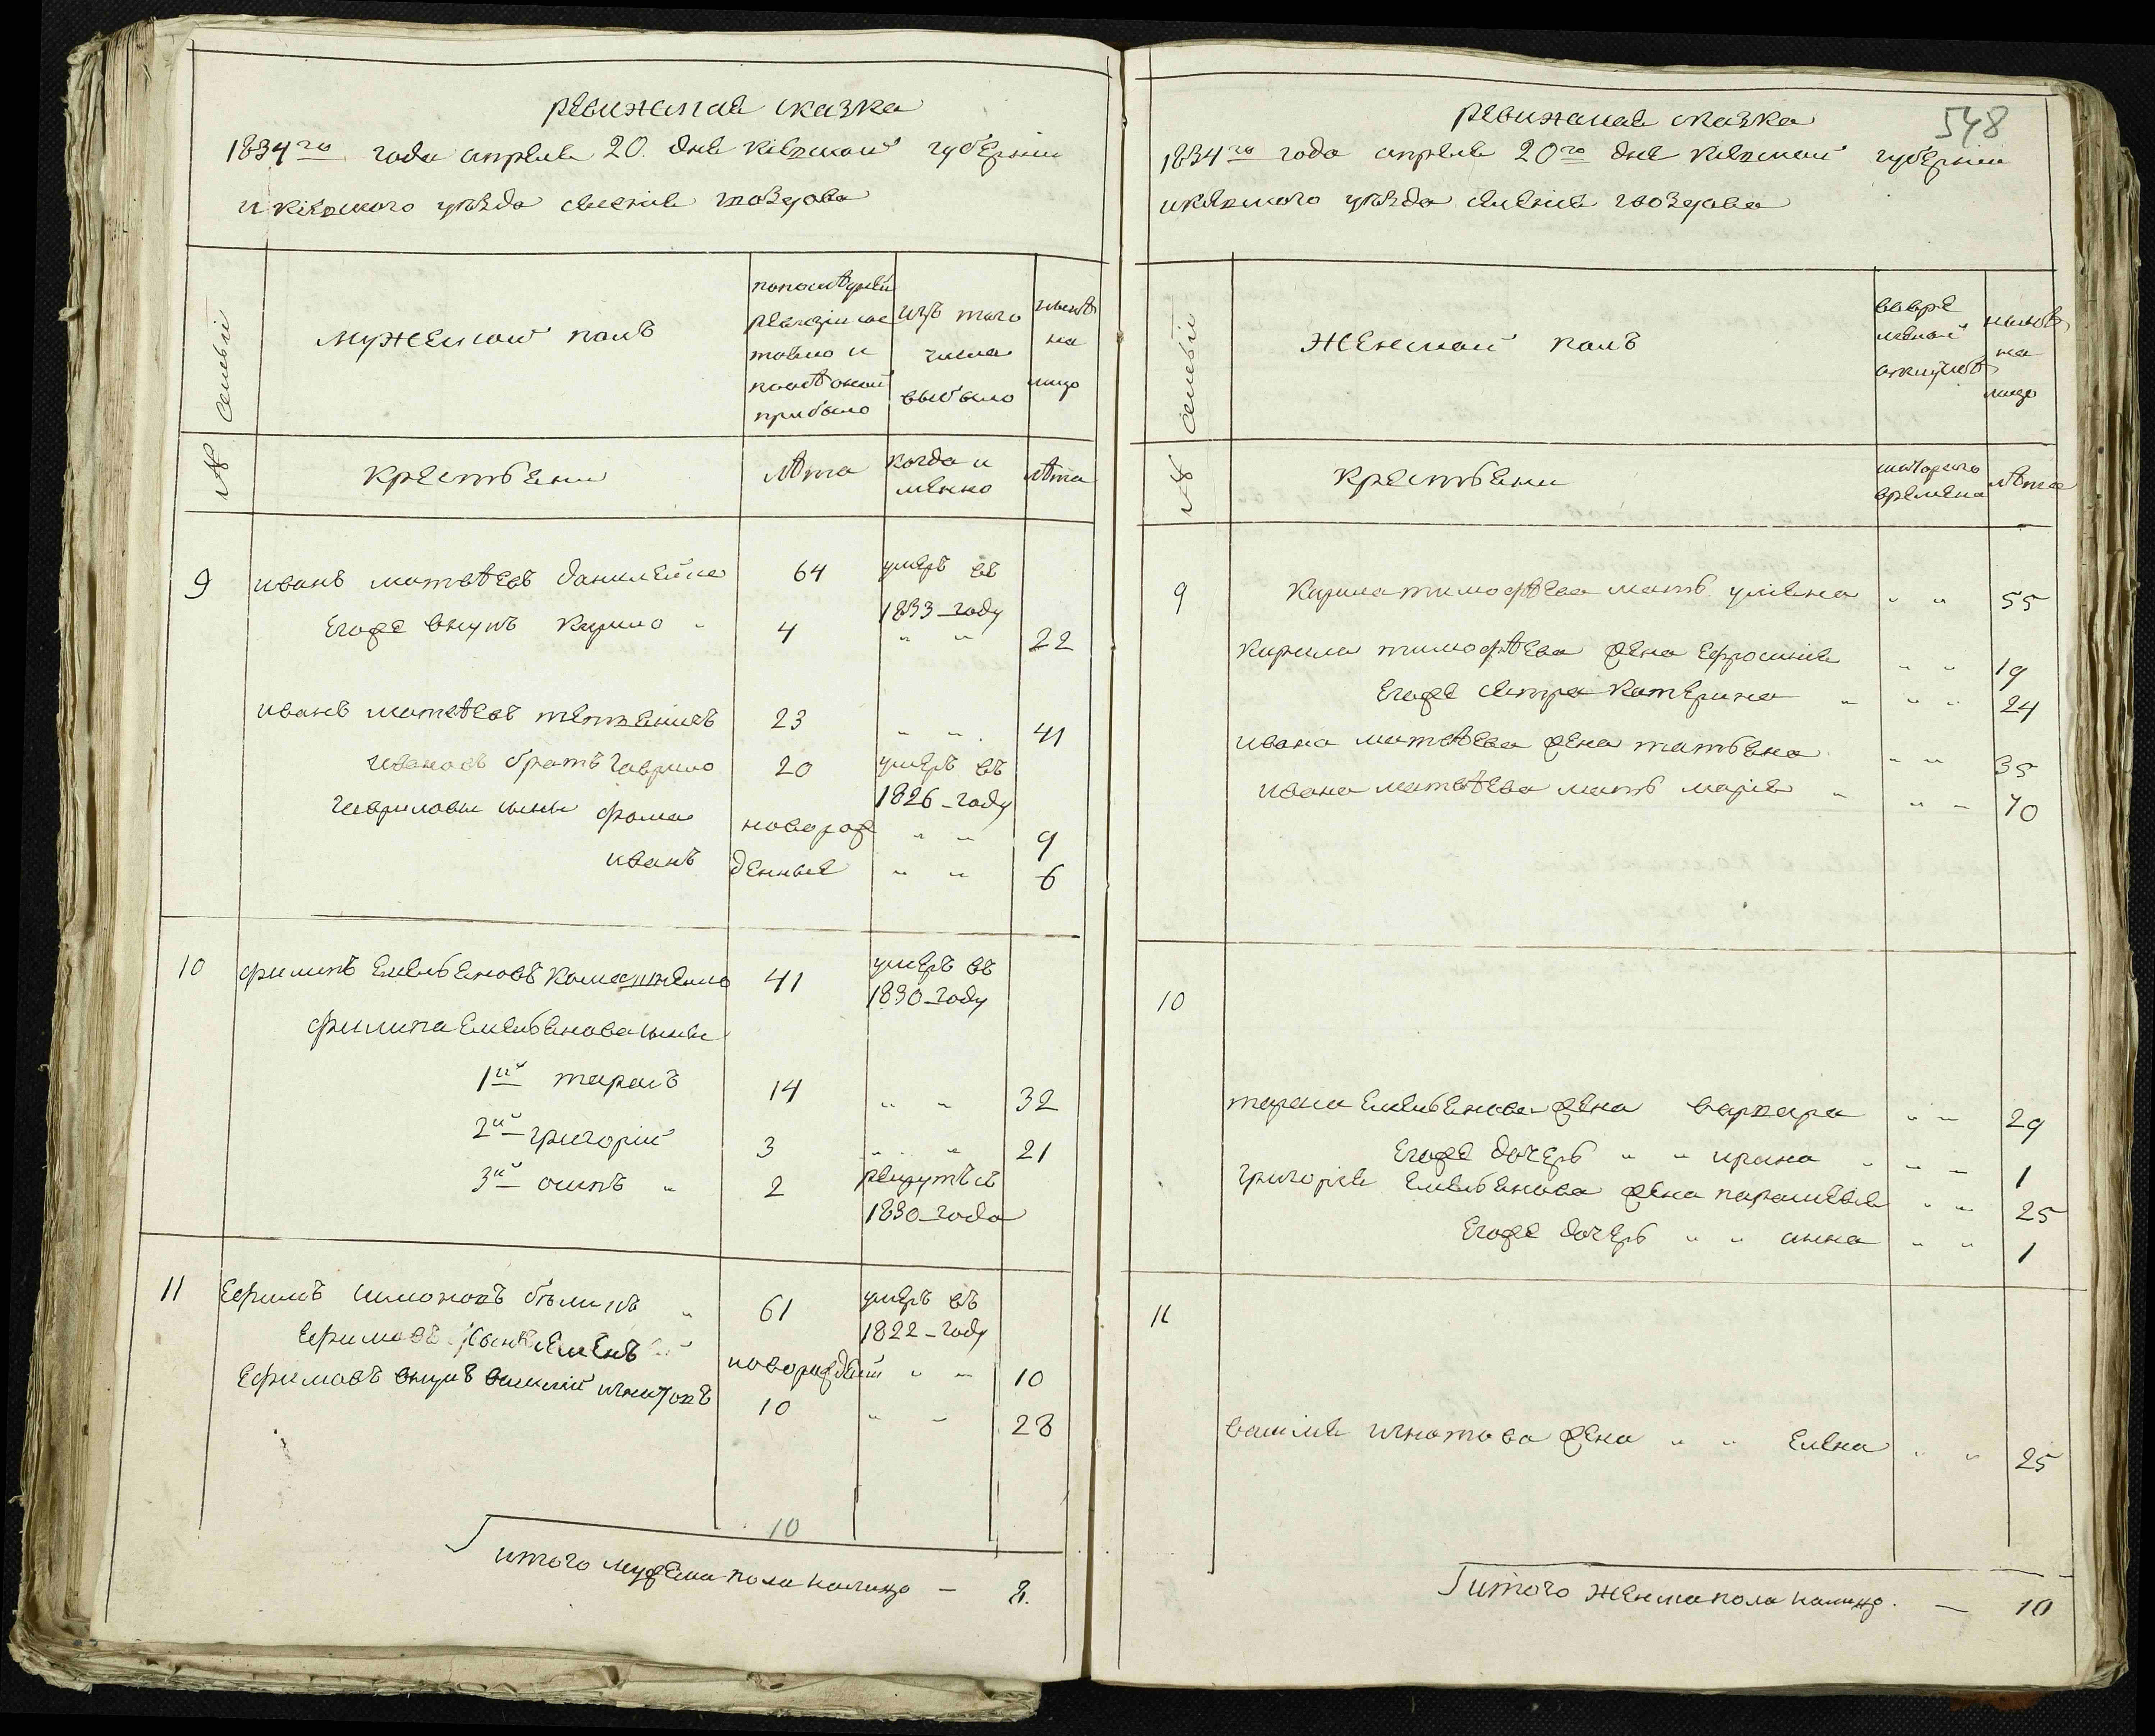 ревижская сказка
1834го года апреля 20. дня кіевской губерніи
и кіевского уезда селенія гвоздова
семьи
мужеской полъ
попоследней
ревизіи сос
тояло и
после оной
прибыло
изъ того
числа
выбыло
ныне
на
лицо
№
крестьяни
лѣта
когда и
менно
лѣта
9 иванъ матвѣевъ данилейко 64 умеръ въ
1833-году
Егоже внукъ кирило " 4 " " 22
иванъ матвѣевъ 23 " " 41
ивановъ братъ гаврило 20 умеръ въ
1826-году
гавриловы сыны фома новорож " " 9
иванъ денные " " 6
10 филипъ Емельяновъ 41 умеръ въ
1830-году
филипа Емельянова сыны
1й тарасъ 14 " " 32
2й григорій 3 " " 21
3й осипъ " 2 рекрутъ съ
1830-года
11 Ефимъ симоновъ " 61 умеръ въ
1822-году
Ефимовъ сынъ семенъ новорожденій " " 10
Ефимовъ внукъ василій игнатовъ 10 " " 28
10
итого мужеска пола налицо — 8.
548
ревижская сказка
1834го года апреля 20го дня кіевской губерніи
и кіевского уезда селенія гвоздова
семьи
женской полъ
вовре
менной
отлучке
ныне
на
лицо
№
крестьяни
скоторого
времени
лѣта
9 Кирила тимофѣева мать уліяна " " 55
Кирила тимофѣева жена Ефросинія " " 19
Егоже сестра катерина " " " 24
ивана матвѣева жена татьяна " " 35
ивана матвѣева мать марія " " " 70
10
тараса Емельянова жена варвара " " 29
Егоже дочерь " " ирина " " " 1
григорія Емельянова жена параскевія " " 25
Егоже дочерь " " анна " " 1
11
василія игнатова жена " " Елена " " 25
итого женска пола налицо. — 10